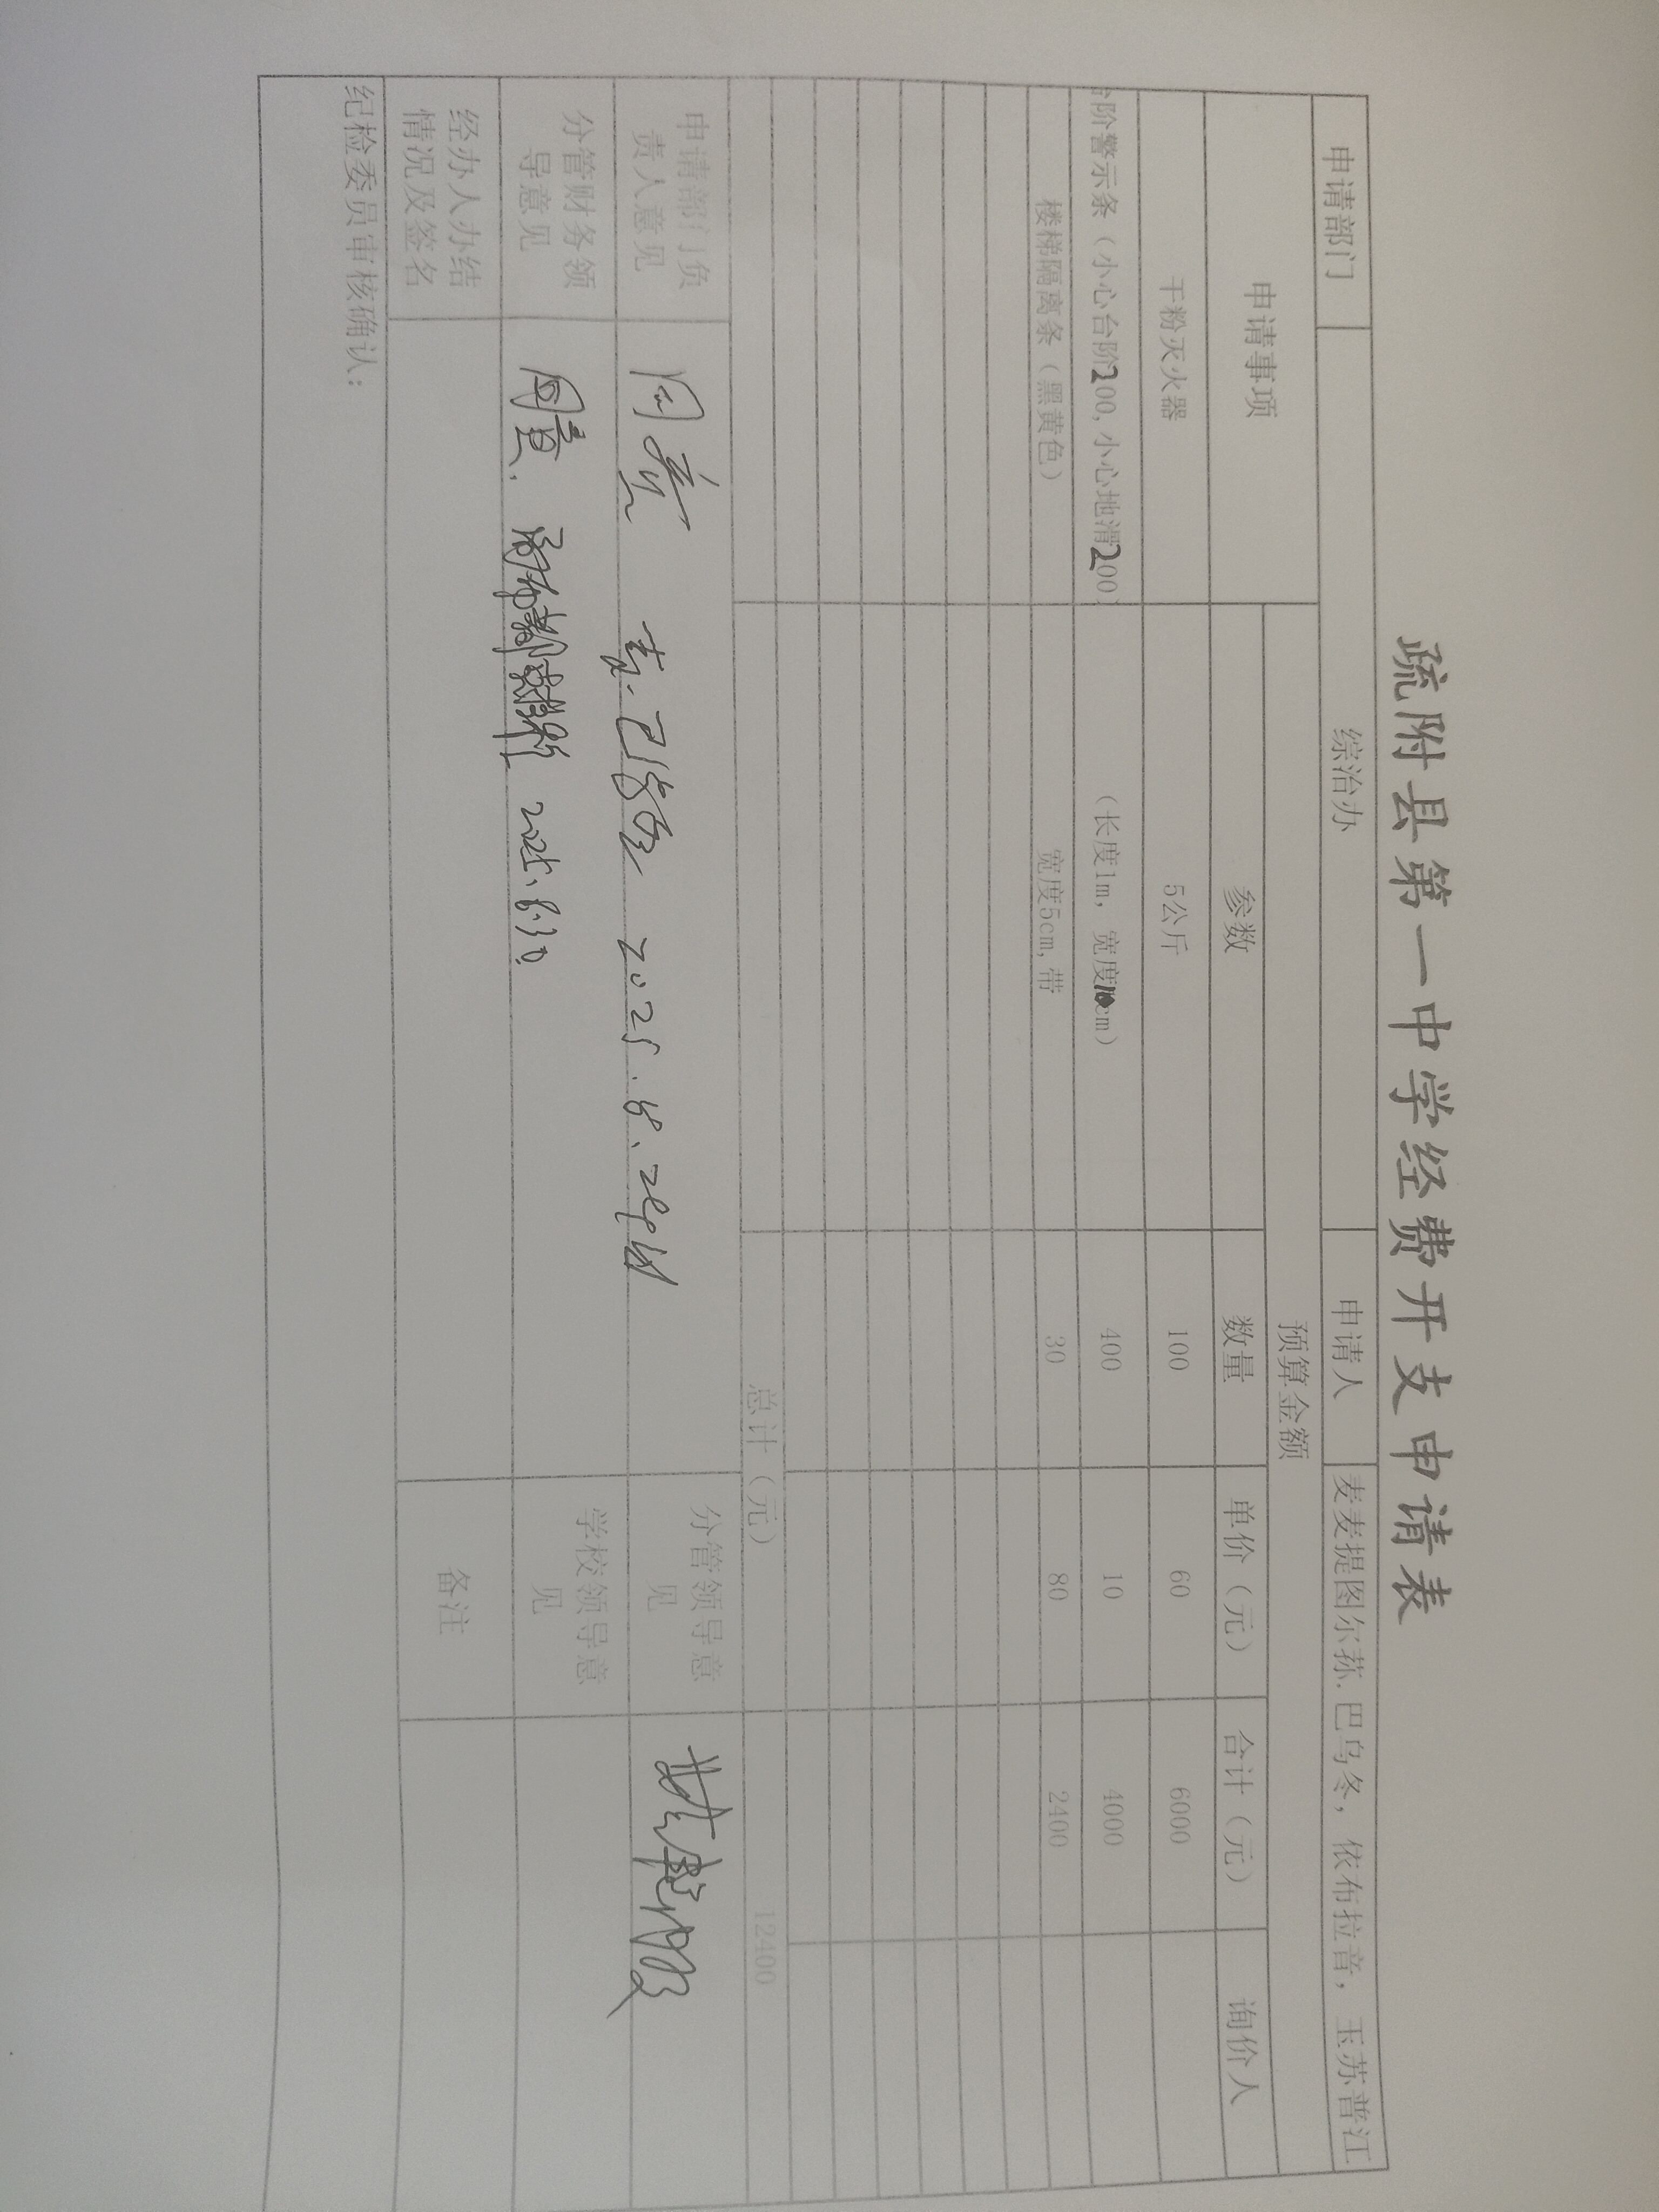 疏附县第一中学经费开支申请表
申请部门 综治办 申请人 麦麦提图尔荪.巴乌冬，依布拉音，玉苏普江
申请事项 预算金额
参数 数量 单价（元） 合计（元） 询价人
干粉灭火器 5公斤 100 60 6000
阶警示条（小心台阶200,小心地滑200 （长度1m，宽度10cm） 400 10 4000
楼梯隔离条（黑黄色） 宽度5cm,带 30 80 2400
总计（元） 12400
申请部门负
责人意见
同意 2025.8.29
分管领导意
见
分管财务领
导意见
同意. 2025.8.30.
学校领导意
见
经办人办结
情况及签名
备注
纪检委员审核确认：